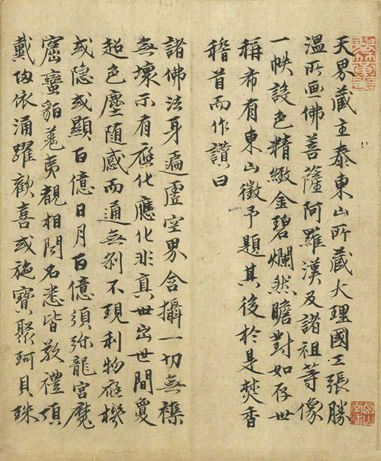 天界藏主泰東山所藏大理國工張勝
温所画佛菩薩阿羅漢及諸祖等像
一帙設色精緻金碧爛然瞻對如存世
稱希有東山徵予題其後於是焚香
稽首而作讚曰
諸佛法身遍虛空界含攝一切無襍
無壞示有應化應化非真世出世間夐
超色塵随感而通無刹不現利物應機
或隐或顯百億日月百億須弥龍宮魔
窟蠻貊羗夷觀相聞名悉皆敬禮頂
戴皈依涌躍歡喜或施寶聚珂貝珠